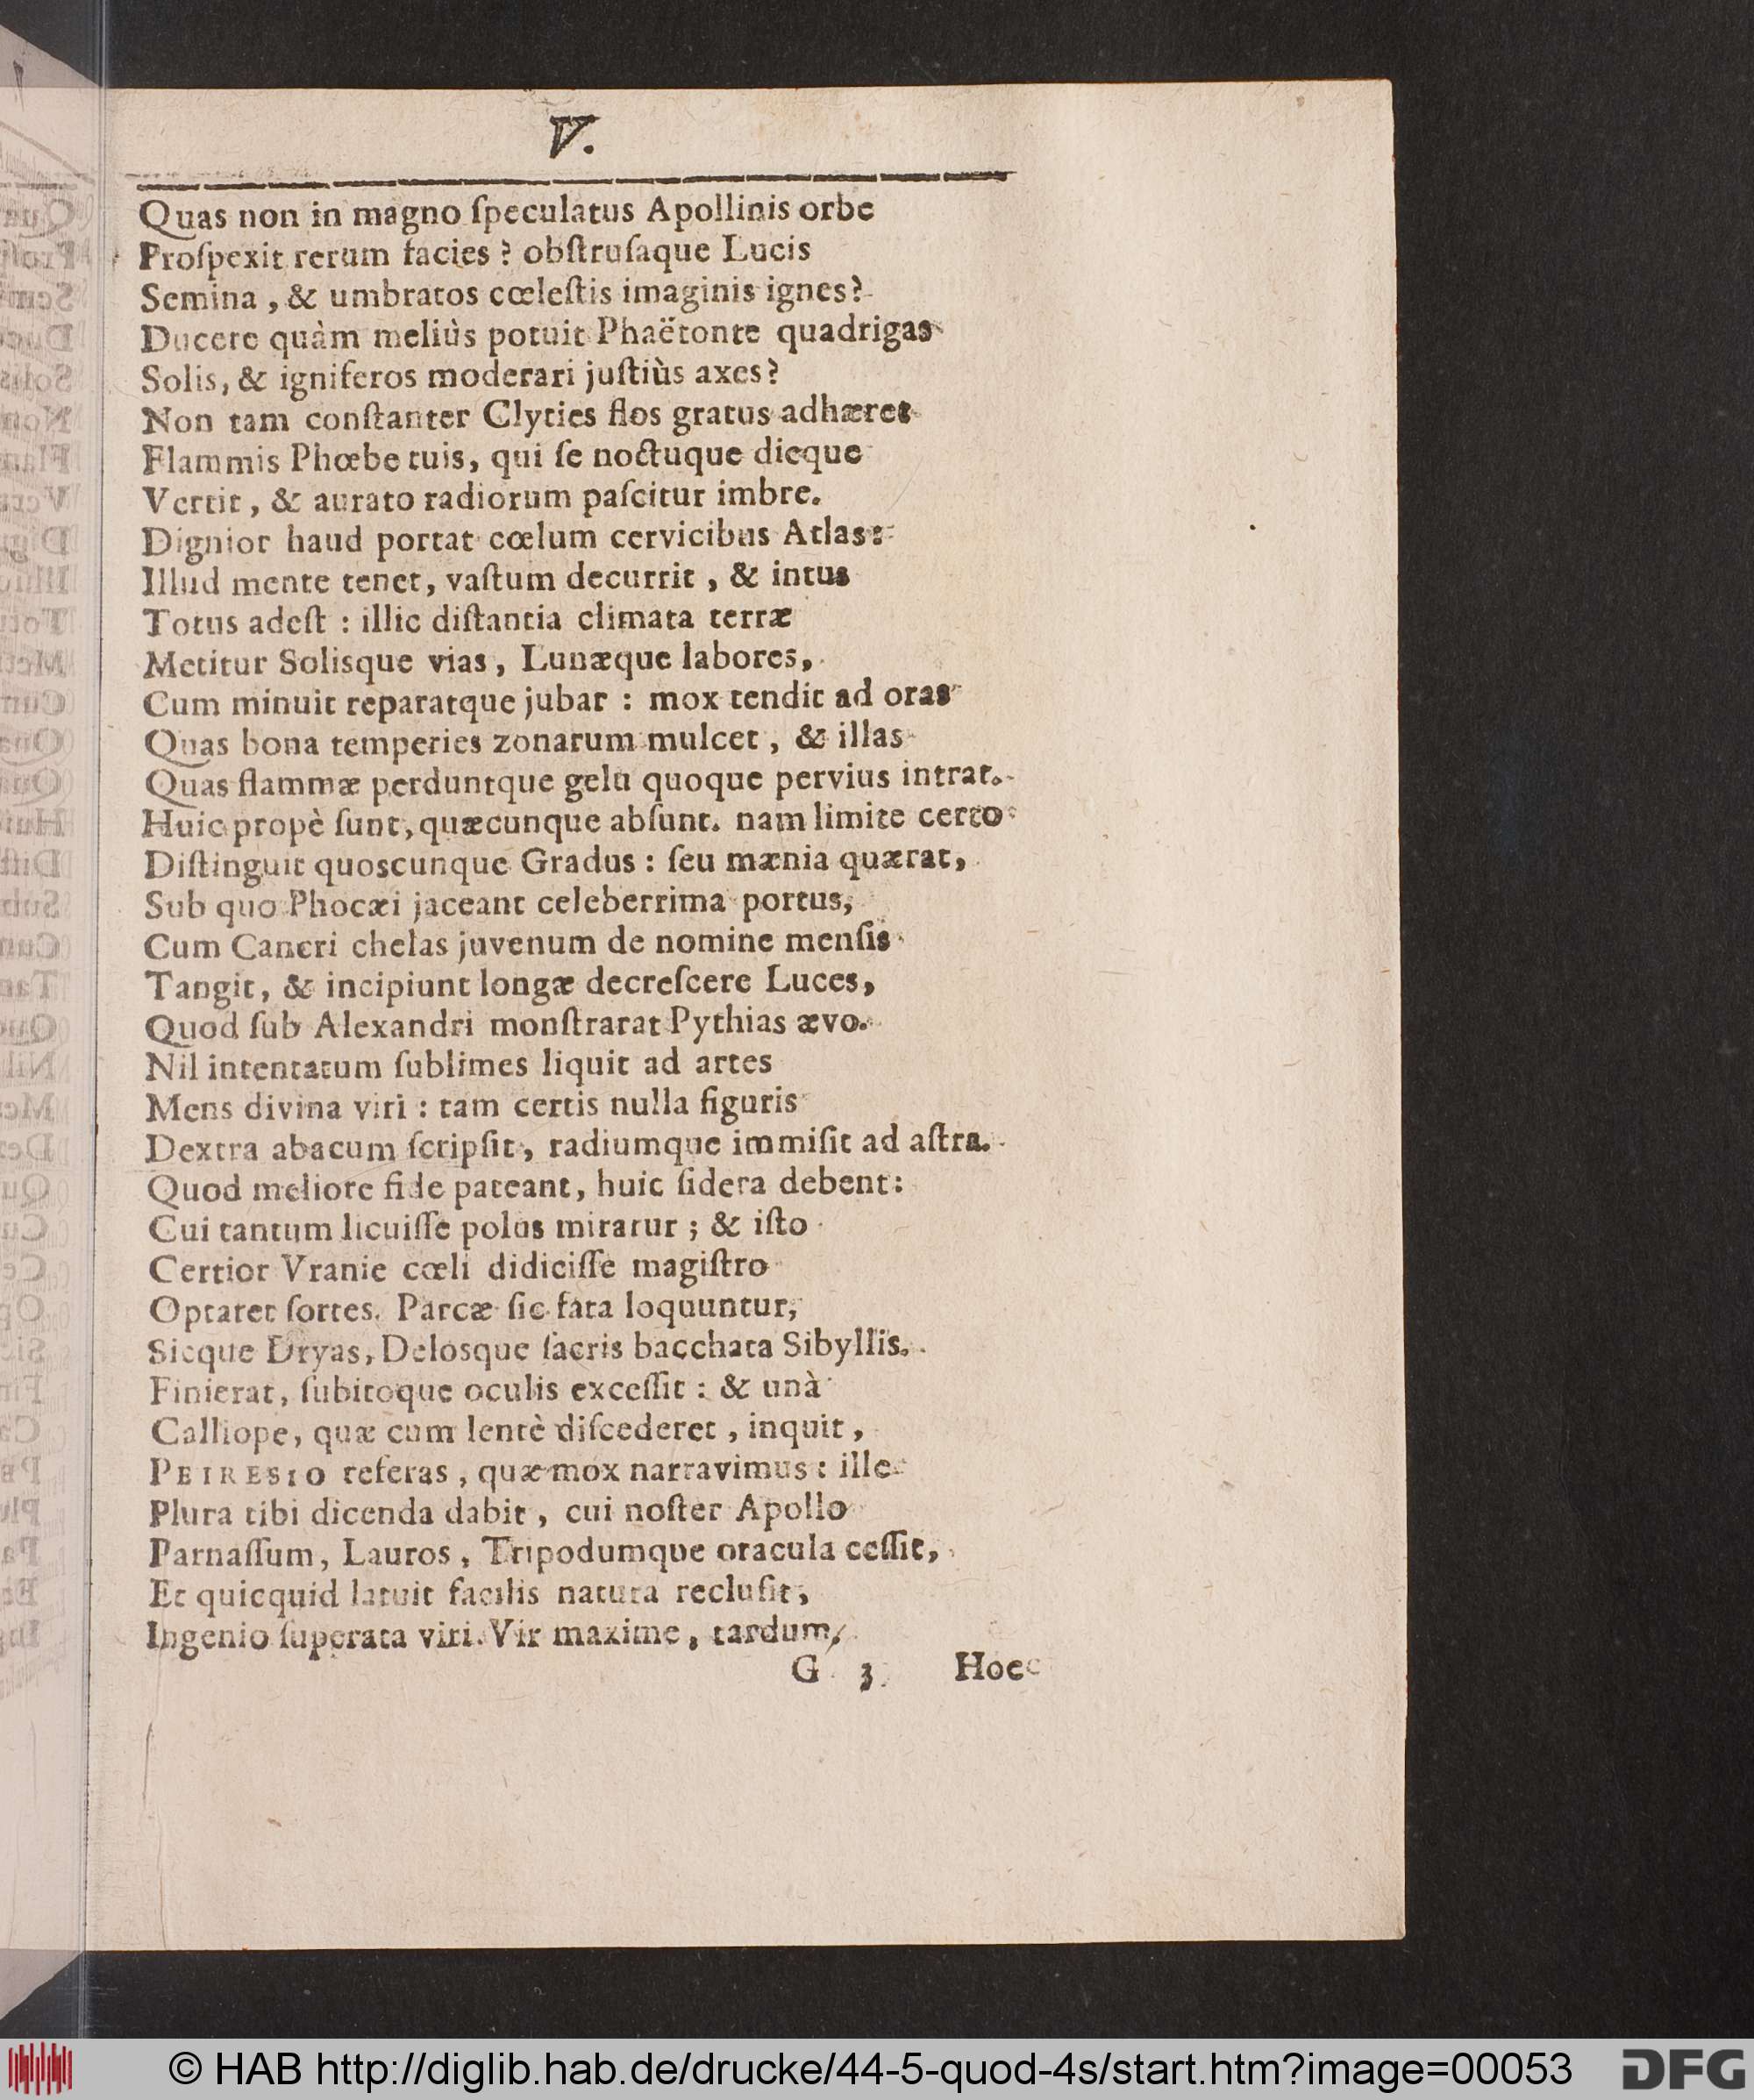 V.
Quas non in magno ſpeculatus Apollinis orbe
Proſpexit rerum facies ? obſtruſaque Lucis
Semina , & umbratos cœleſtis imaginis ignes?
Ducere quàm meliùs potuit Phaëtonte quadrigas
Solis, & igniferos moderari juſtiùs axes?
Non tam conſtanter Clyties flos gratus adhæret
Flammis Phœbe tuis, qui ſe noctuque dieque
Vertit , & aurato radiorum paſcitur imbre.
Dignior haud portat cœlum cervicibus Atlas:
Illud mente tenet, vaſtum decurrit , & intus
Totus adeſt : illic diſtantia climata terræ
Metitur Solisque vias, Lunæque labores,
Cum minuit reparatque jubar : mox tendit ad oras
Quas bona temperies zonarum mulcet , & illas
Quas flammæ perduntque gelu quoque pervius intrat.
Huic propè ſunt, quæcunque abſunt. nam limite certo
Diſtinguit quoscunque Gradus : ſeu mænia quærat,
Sub quo Phocæi jaceant celeberrima portus,
Cum Cancri chelas juvenum de nomine menſis
Tangit, & incipiunt longæ decreſcere Luces,
Quod ſub Alexandri monſtrarat Pythias ævo.
Nil intentatum ſublimes liquit ad artes
Mens divina viri : tam certis nulla figuris
Dextra abacum ſcripſit, radiumque immiſit ad aſtra.
Quod meliore fide pateant, huic ſidera debent:
Cui tantum licuiſſe polus miratur ; & iſto
Certior Vranie cœli didiciſſe magiſtro
Optaret ſortes. Parcæ ſic fata loquuntur,
Sicque Dryas, Delosque ſacris bacchata Sibyllis.
Finierat, ſubitoque oculis exceſſit : & unà
Calliope, quæ cum lentè diſcederet , inquit ,
PEIRESIO referas , quæ mox narravimus : ille
Plura tibi dicenda dabit , cui noſter Apollo
Parnaſſum, Lauros , Tripodumque oracula ceſſit,
Et quicquid latuit facilis natura recluſit,
Ingenio ſuperata viri. Vir maxime , tardum,
G 3 Hoc
© HAB http://diglib.hab.de/drucke/44-5-quod-4s/start.htm?image=00053
DFG